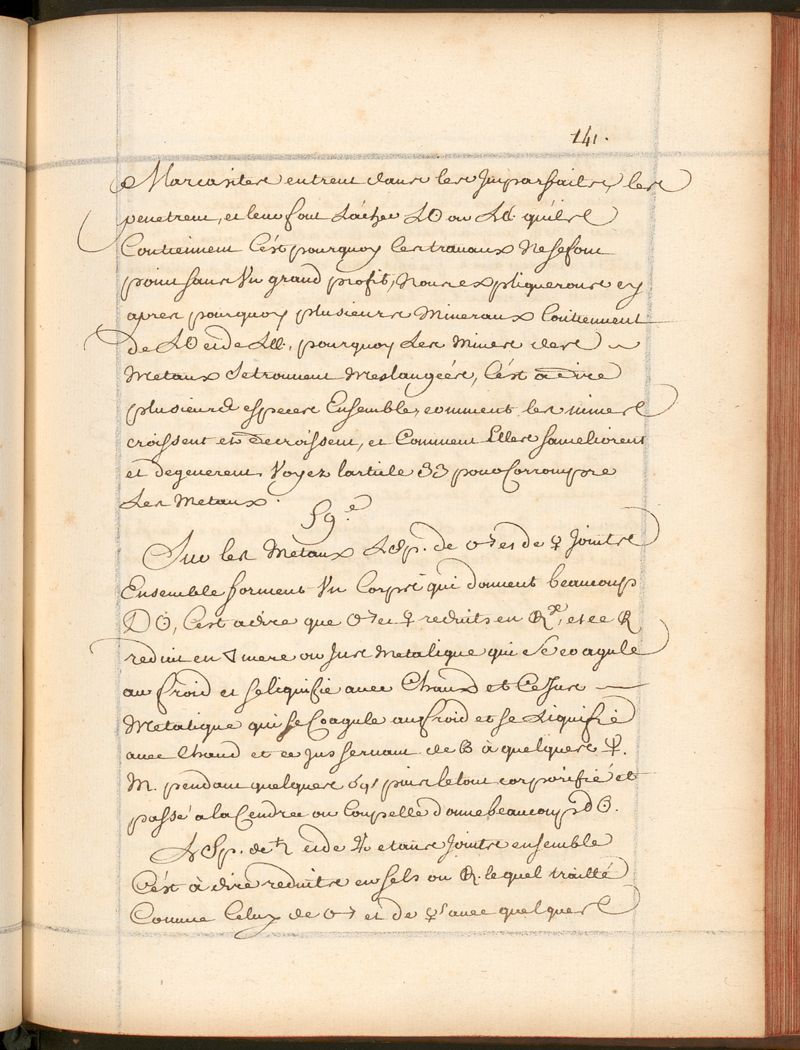 141.
Marcasites entrent dans les Jmparfaits, les
penetrent, et leur font Lácher L☉ ou L☾. quils
Contiennent C'est pourquoy les travaux Nesefont
point sans Vn grand profit, Nous expliquerons cy
apres pourquoy plusieurs Mineraux Contiennent
de L☉ et de L☾, pourquoy Les Mines des
Metaux Setrouvent Meslangeés, C'est à dire
plusieurs especes Ensemble, comment les mines
croissent et Decroissent, et Comment Elles sameliorent
et degenerent. Voyez larticle 33 pour Corrompre
Les Metaux.
59.e
Sur les Metaux LSp. de ♂ et de ♀ Joints
Ensemble forment Vn Corps qui donnent beaucoup
D☉, C'est adire que ♂ et ♀ reduits en et ce
reduit en mere ou Jus Metalique qui Se coagule
au froid et seliquifie avec Chaux et Ce Jus
Metalique qui se Coagule au froid et se Liquifie
avec Chaud et ce Jus servant de B à quelques
M. pendant quelques puis letout corporifié et
passé a la Cendreé ou Coupelle donne beaucoup d☉.
LSp. de ♄ et de ♃ etans Joints ensemble
C'est à dire reduits en sels ou lequel traitté
Comme Celuy de ♂ et de ♀ avec quelques